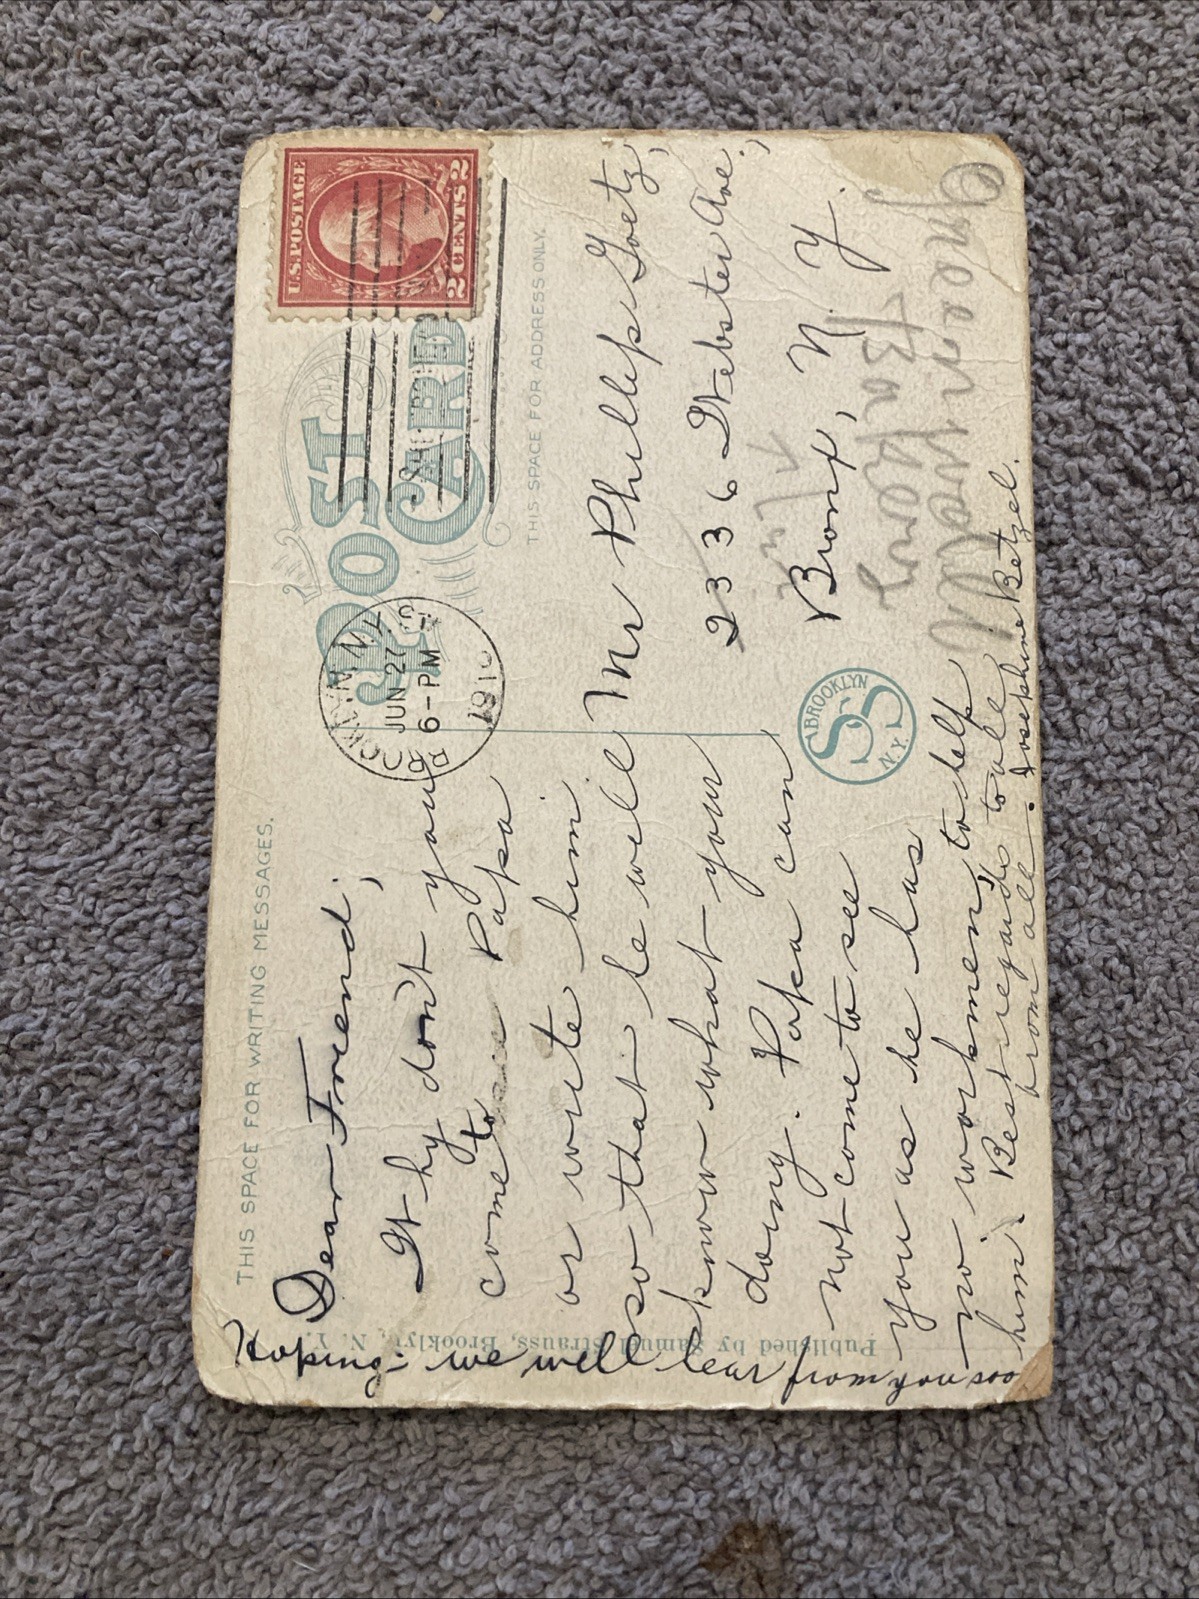 THIS SPACE FOR WRITING MESSAGES.
POST CARD
THIS SPACE FOR ADDRESS ONLY.
U.S. POSTAGE
2 CENTS 2
BROOKLYN, N.Y.
JUN 27
6-PM
191
Dear Friend;
Why don't you
come to Papa
or write him
so that he will
know what your
doing. Papa can
not come to see
you as he has
no workmen to help
him. Best regards to all
from all. Josephine Betzel.
Hoping we will hear from you soo
Mr Phillip Goetz,
2336 Webster Ave.,
Bronx, N. Y.
Greenwall
BROOKLYN
SS
N.Y.
Published by Samuel Strauss, Brooklyn, N. Y.